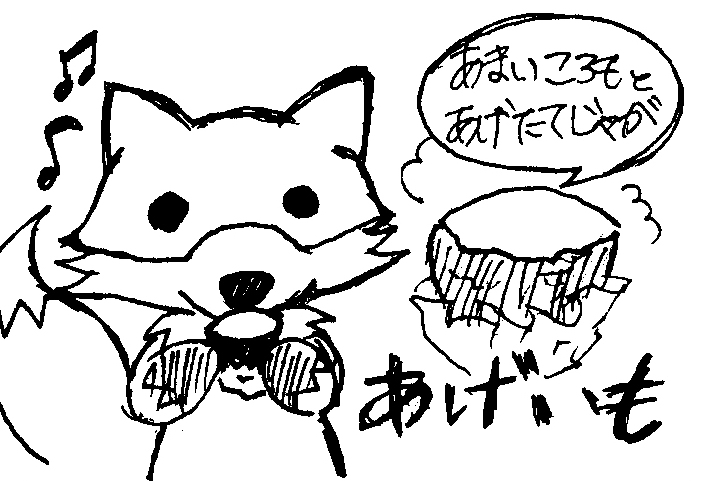 あまいころもと
あげたてじゃが
あげいも